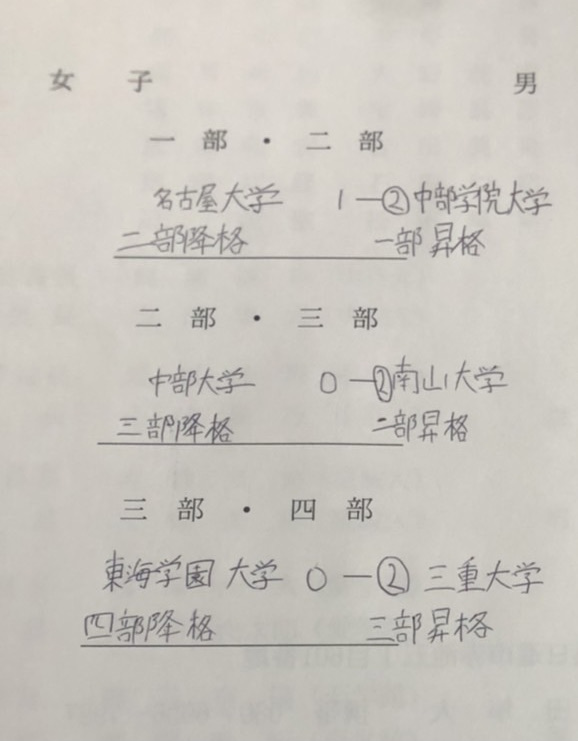 女 子 男
一 部 ・ 二 部
名古屋大学 1 ― ② 中部学院大学
二部降格 一部昇格
二 部 ・ 三 部
中部大学 0 ― ② 南山大学
三部降格 二部昇格
三 部 ・ 四 部
東海学園大学 0 ― ② 三重大学
四部降格 三部昇格